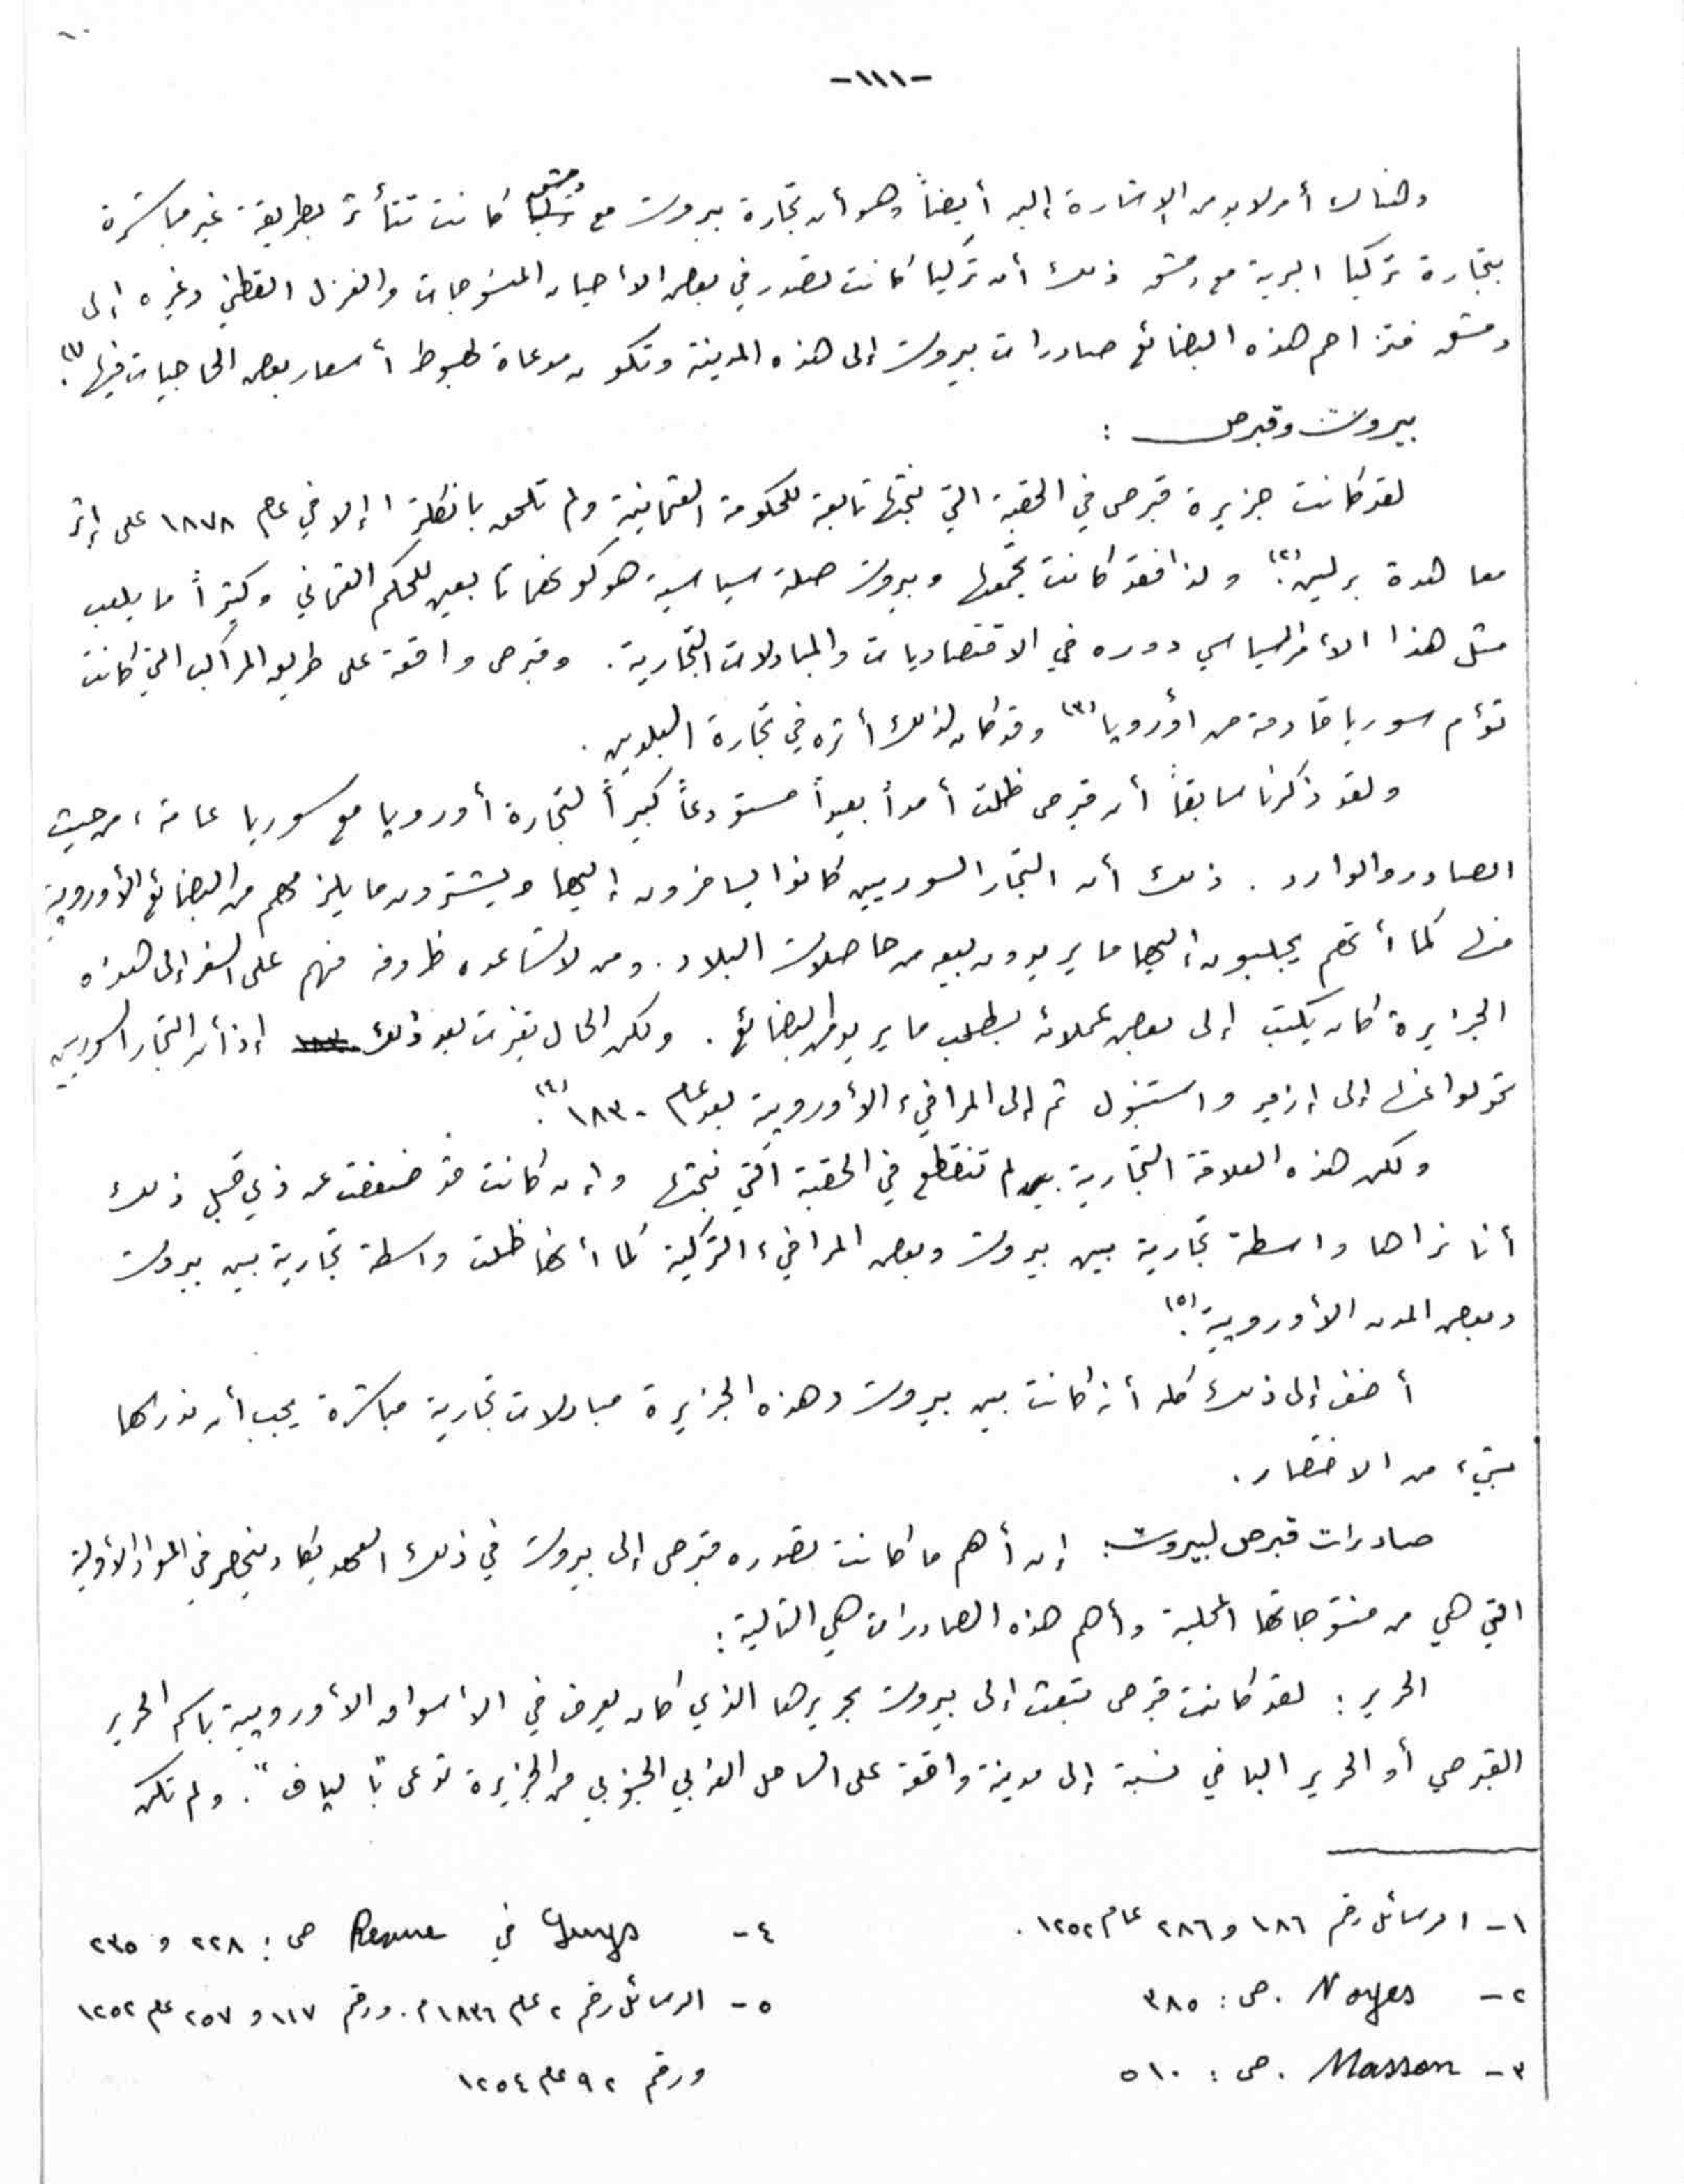 -١١١-
وهناك أمر لا بد من الإشارة إليه أيضاً وهو أن تجارة بيروت مع دمشق كانت تتأثر بطريقة غير مباشرة
بتجارة تركيا البرية مع دمشق ذلك أن تركيا كانت تصدر في بعض الأحيان المنسوجات والغزل القطني وغيره إلى
دمشق فتزاحم هذه البضائع صادرات بيروت إلى هذه المدينة وتكون مدعاة لهبوط أسعار بعض الحاجيات فيها (١).
بيروت وقبرص :
لقد كانت جزيرة قبرص في الحقبة التي نبحثها تابعة للحكومة العثمانية ولم تلحق بانكلترا إلا في عام ١٨٧٨ على إثر
معاهدة برلين (٢). ولذا فقد كانت تجمعها وبيروت صلة سياسية هو كونهما تابعين للحكم العثماني وكثيراً ما يلعب
مثل هذا الأمر السياسي دوره في الاقتصاديات والمبادلات التجارية. وقبرص واقعة على طريق المراكب التي كانت
تؤم سوريا قادمة من أوروبا (٣) وقد كان لذلك أثره في تجارة البلدين.
ولقد ذكرنا سابقاً أن قبرص ظلت أمداً بعيداً مستودعاً كبيراً لتجارة أوروبا مع سوريا عامة، من حيث
الصادر والوارد. ذلك أن التجار السوريين كانوا يسافرون إليها ويشترون ما يلزمهم من البضائع الأوروبية
منها كما أنهم يجلبون إليها ما يريدون بيعه من حاصلات البلاد. ومن لا تساعده ظروفه منهم على السفر إلى هذه
الجزيرة كان يكتب إلى بعض عملائه بطلب ما يريد من البضائع. ولكن الحال تغيرت بعد ذلك إذ أن التجار السوريين
تحولوا عنها إلى إزمير واستنبول ثم إلى المرافيء الأوروبية بعد عام ١٨٣٠ (٤).
ولكن هذه العلاقة التجارية لم تنقطع في الحقبة التي نبحثها وإن كانت قد ضعفت عن ذي قبل ذلك
أنا نراها واسطة تجارية بين بيروت وبعض المرافيء التركية كما أنها ظلت واسطة تجارية بين بيروت
وبعض المدن الأوروبية (٥).
أضف إلى ذلك كله أنه كانت بين بيروت وهذه الجزيرة مبادلات تجارية مباشرة يجب أن ندركها
بشيء من الاختصار.
صادرات قبرص لبيروت: إن أهم ما كانت تصدره قبرص إلى بيروت في ذلك العهد يكاد ينحصر في المواد الأولية
التي هي من منتوجاتها المحلية وأهم هذه الصادرات هي التالية:
الحرير: لقد كانت قبرص تبعث إلى بيروت بحريرها الذي كان يعرف في الأسواق الأوروبية باسم الحرير
القبرصي أو الحرير البافي نسبة إلى مدينة واقعة على الساحل الغربي الجنوبي من الجزيرة تدعى "بافو". ولم تكن
١- الرسائل رقم ١٨٦ و ٢٨٦ عام ١٢٥٢.
٢- Noyes . ص: ٣٨٥
٣- Masson . ص: ٥١٠
٤- Guys في Revue ص: ٢٢٨ و ٢٣٥
٥- الرسائل رقم ٢ عام ١٨٣٦م. ورقم ١١٧ و ٢٥٧ عام ١٢٥٢
ورقم ٩٢ عام ١٢٥٤